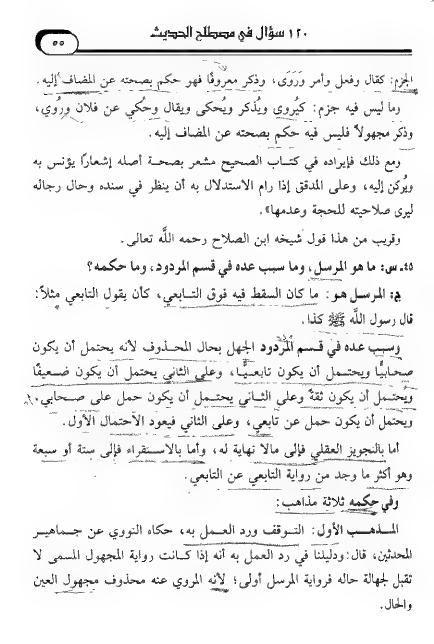 ١٢٠ سؤال في مصطلح الحديث
٥٥
الجزم: كقال وفعل وأمر وَرَوَى، وذكر معروفًا فهو حكم بصحته عن المضاف إليه.
وما ليس فيه جزم: كيُروي ويُذكر ويُحكى ويقال وحُكي عن فلان ورُوي،
وذكر مجهولاً فليس فيه حكم بصحته عن المضاف إليه.
ومع ذلك فإيراده في كتاب الصحيح مشعر بصحة أصله إشعارًا يؤنس به
ويُركن إليه، وعلى المدقق إذا رام الاستدلال به أن ينظر في سنده وحال رجاله
ليرى صلاحيته للحجة وعدمها».
وقريب من هذا قول شيخه ابن الصلاح رحمه الله تعالى.
٤٥ـ س: ما هو المرسل، وما سبب عده في قسم المردود، وما حكمه؟
ج: المرسل هو: ما كان السقط فيه فوق التابعي، كأن يقول التابعي مثلاً:
قال رسول الله ﷺ كذا.
وسبب عده في قسم المردود الجهل بحال المحذوف لأنه يحتمل أن يكون
صحابيًا ويحتمل أن يكون تابعيًا، وعلى الثاني يحتمل أن يكون ضعيفًا
ويحتمل أن يكون ثقةً وعلى الثاني يحتمل أن يكون حمل على صحابي
ويحتمل أن يكون حمل عن تابعي، وعلى الثاني فيعود الاحتمال الأول.
أما بالتجويز العقلي فإلى مالا نهاية له، وأما بالاستقراء فإلى ستة أو سبعة
وهو أكثر ما وجد من رواية التابعي عن التابعي.
وفي حكمه ثلاثة مذاهب:
المذهب الأول: التوقف ورد العمل به، حكاه النووي عن جماهير
المحدثين، قال: ودليلنا في رد العمل به أنه إذا كانت رواية المجهول المسمى لا
تقبل لجهالة حاله فرواية المرسل أولى؛ لأنه المروي عنه محذوف مجهول العين
والحال.